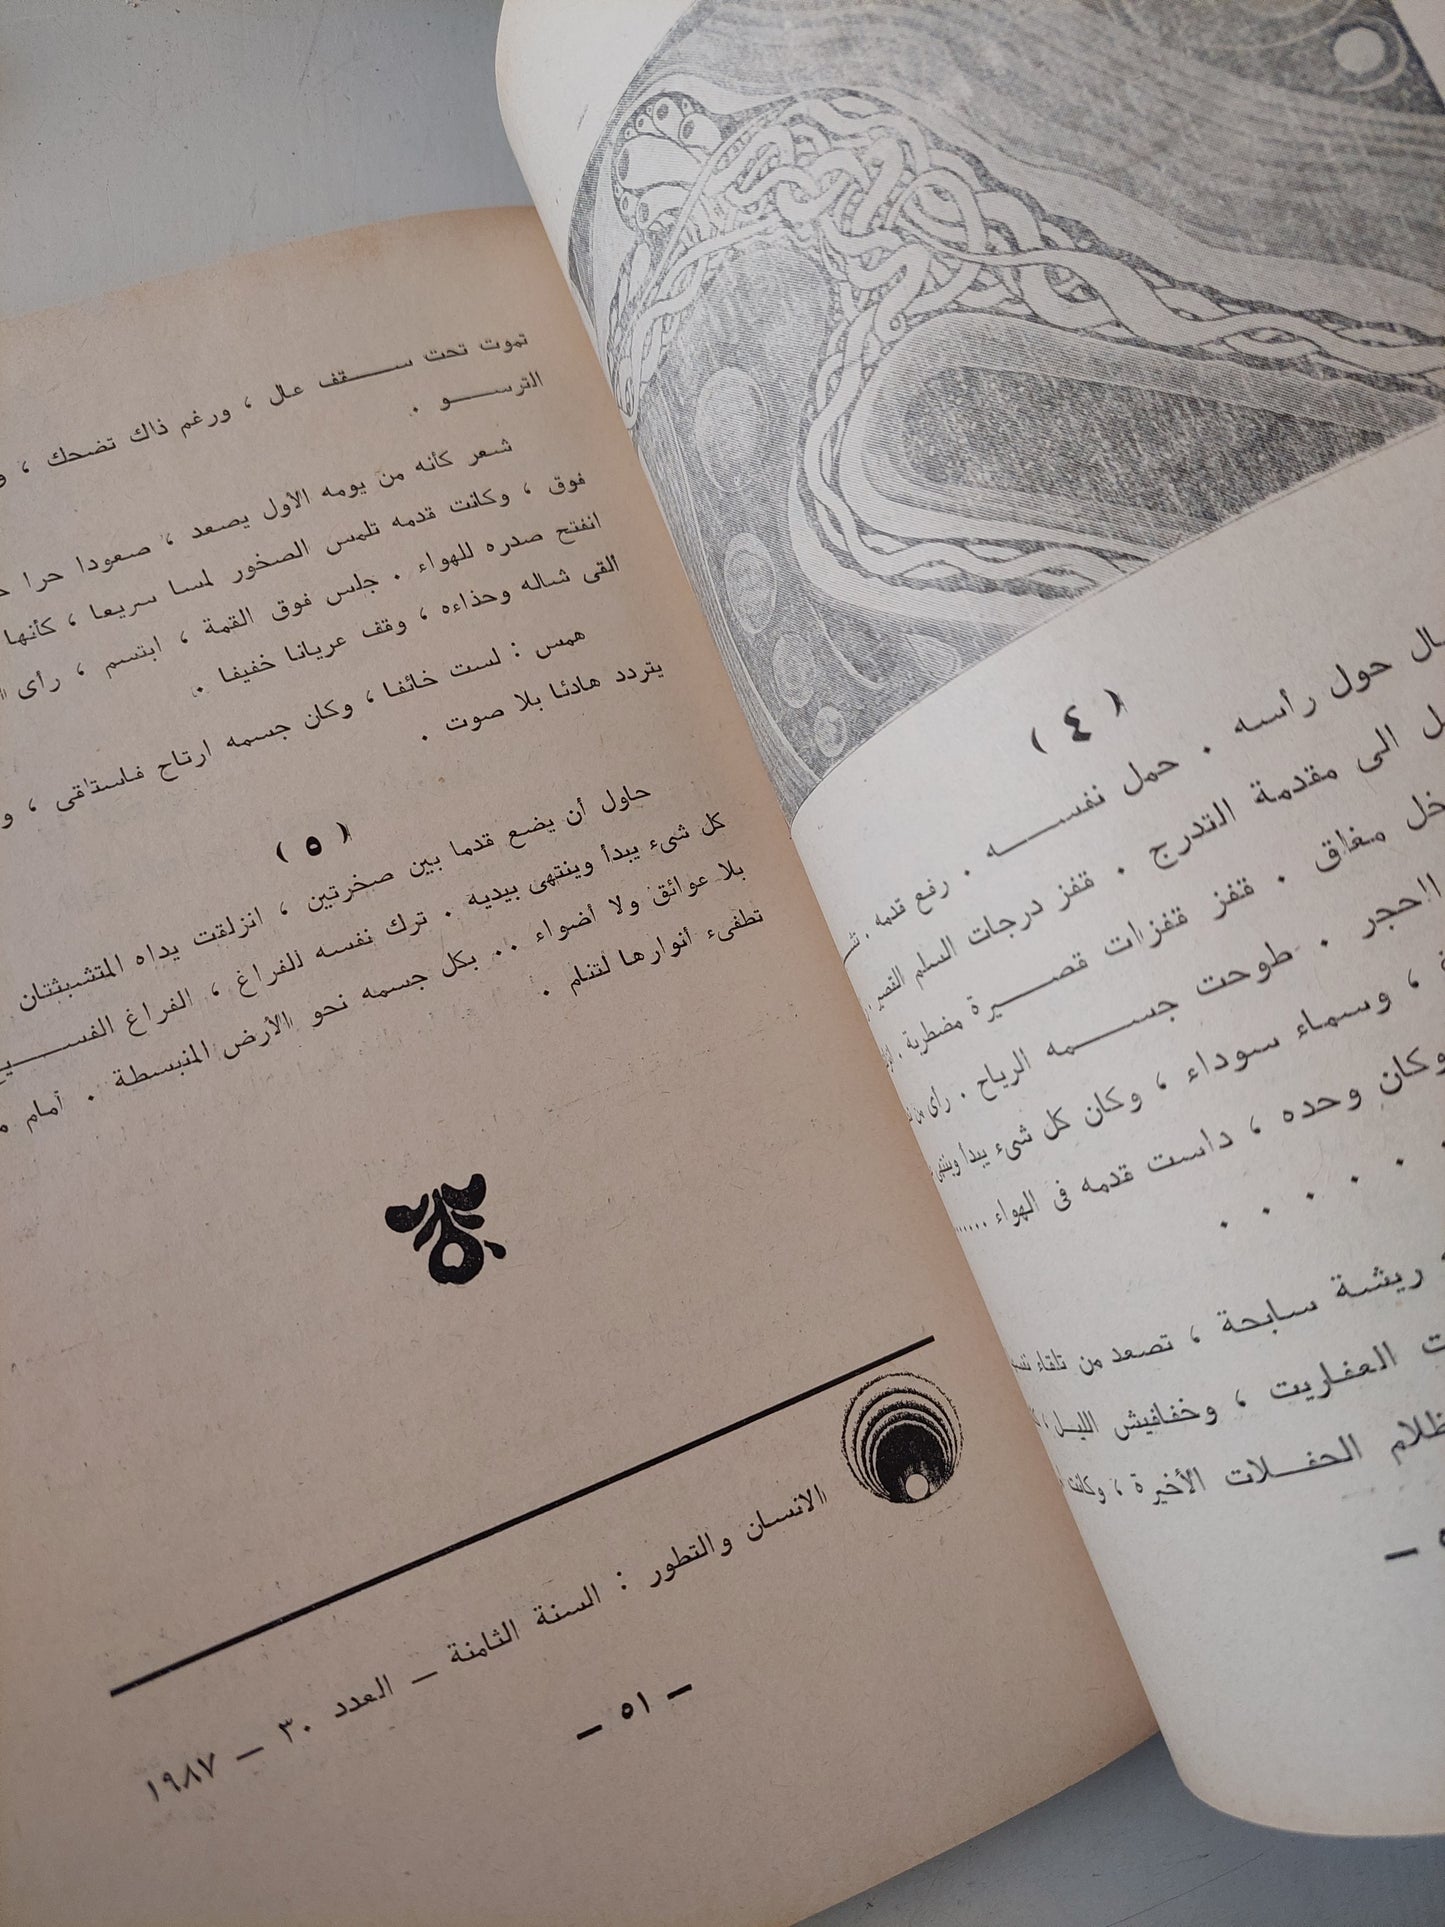 ( ٤ )
حول رأسه . حمل نفســـــه . رفع قدمه .
الى مقدمة التدرج . قفز درجات السلم
مغاق . قفز قفزات قصـــــيرة مضطربة .
الحجر . طوحت جســـــمه الرياح . رأى من
، وسماء سوداء ، وكان كل شىء يبدأ وينتهى
وكان وحده ، داست قدمه فى الهواء ......
. . . . . .
ريشة سابحة ، تصعد من تلقاء
العفاريت ، وخفافيش الليـل ،
الحفـــلات الأخيرة ، وكانت
تموت تحت ســـــقف عال ، ورغم ذاك تضحك ،
الترســـــو .
شعر كأنه من يومه الأول يصعد ، صعودا حرا
فوق ، وكانت قدمه تلمس الصخور لمسا سريعا ، كأنها
انفتح صدره للهواء . جلس فوق القمة ، ابتسم ، رأى
ألقى شاله وحذاءه ، وقف عريانا خفيفا .
همس : لست خائفا ، وكان جسمه ارتاح فاستاقى ،
يتردد هادئا بلا صوت .
( ٥ )
حاول أن يضع قدما بين صخرتين ، انزلقت يداه المتشبثتان
كل شىء يبدأ وينتهى بيديه . ترك نفسه للفراغ ، الفراغ
بلا عوائق ولا أضواء .. بكل جسمه نحو الأرض المنبسطة . أمام
تطفىء أنوارها لتنام .
الانسان والتطور : السنة الثامنة ــ العدد ٣٠ ــ ١٩٨٧
ــ ٥١ ــ